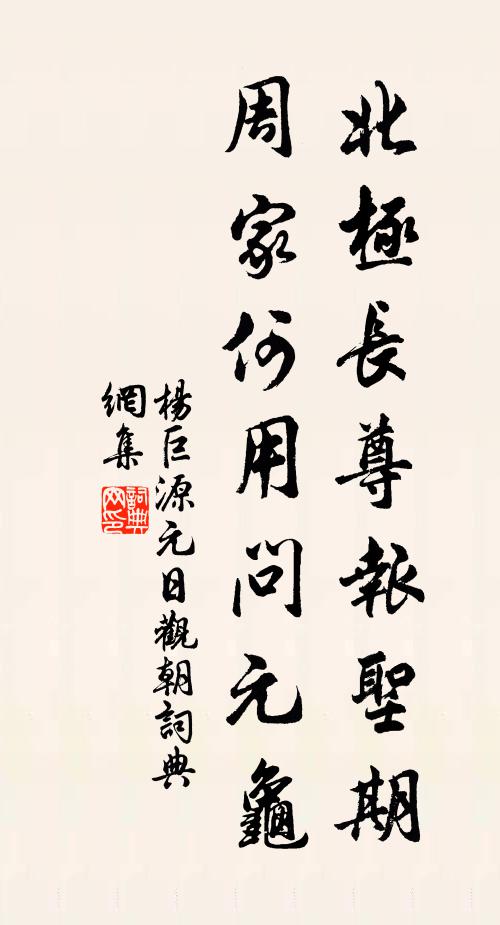 北極長尊報聖期
周家何用問元龜
楊巨源元日觀朝詞典
網集
詞典網印